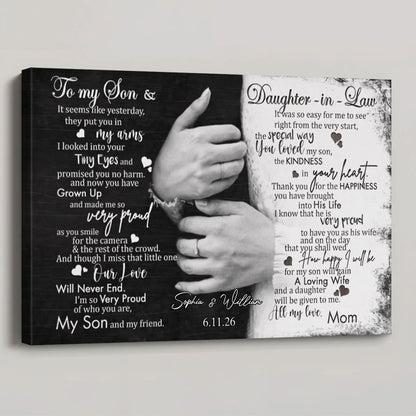 To my Son &
It seems like yesterday,
they put you in
my arms
I looked into your
Tiny Eyes and
promised you no harm.
and now you have
Grown Up
and made me so
very proud
as you smile
for the camera
& the rest of the crowd.
And though I miss that little one
Our Love
Will Never End.
I'm so Very Proud
of who you are,
My Son and my friend.
Daughter-in-Law
It was so easy for me to see
right from the very start,
the special way
You loved my son,
the KINDNESS
in your heart.
Thank you for the HAPPINESS
you have brought
into His Life
I know that he is
very proud
to have you as his wife
and on the day
that you shall wed
How happy I will be
for my son will gain
A Loving Wife
and a daughter
will be given to me.
All my love, Mom
Sophia & William
6.11.26